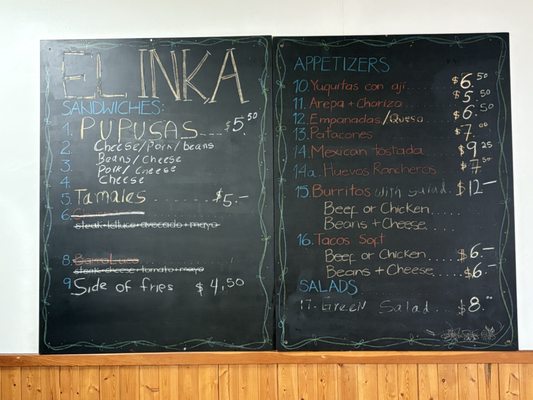 EL INKA
SANDWICHES:
1. PUPUSAS $5.50
2. Cheese/Pork/beans
3. Beans/Cheese
Pork/Cheese
4. Cheese
5. Tamales $5.-
6
steak+lettuce+avocado+mayo
8
steak+cheese+tomato+mayo
9 Side of fries $4,50
APPETIZERS
10. Yuquitas con aji $6.50
11. Arepa + Chorizo $5.50
12. Empanadas/Queso $6.50
13. Patacones $7.00
14. Mexican tostada $9.25
14a. Huevos Rancheros $7.50
15 Burritos with Salad $12-
Beef or Chicken
Beans + Cheese
16. Tacos Soft
Beef or Chicken $6.-
Beans + Cheese $6.-
SALADS
17. Green Salad $8.00